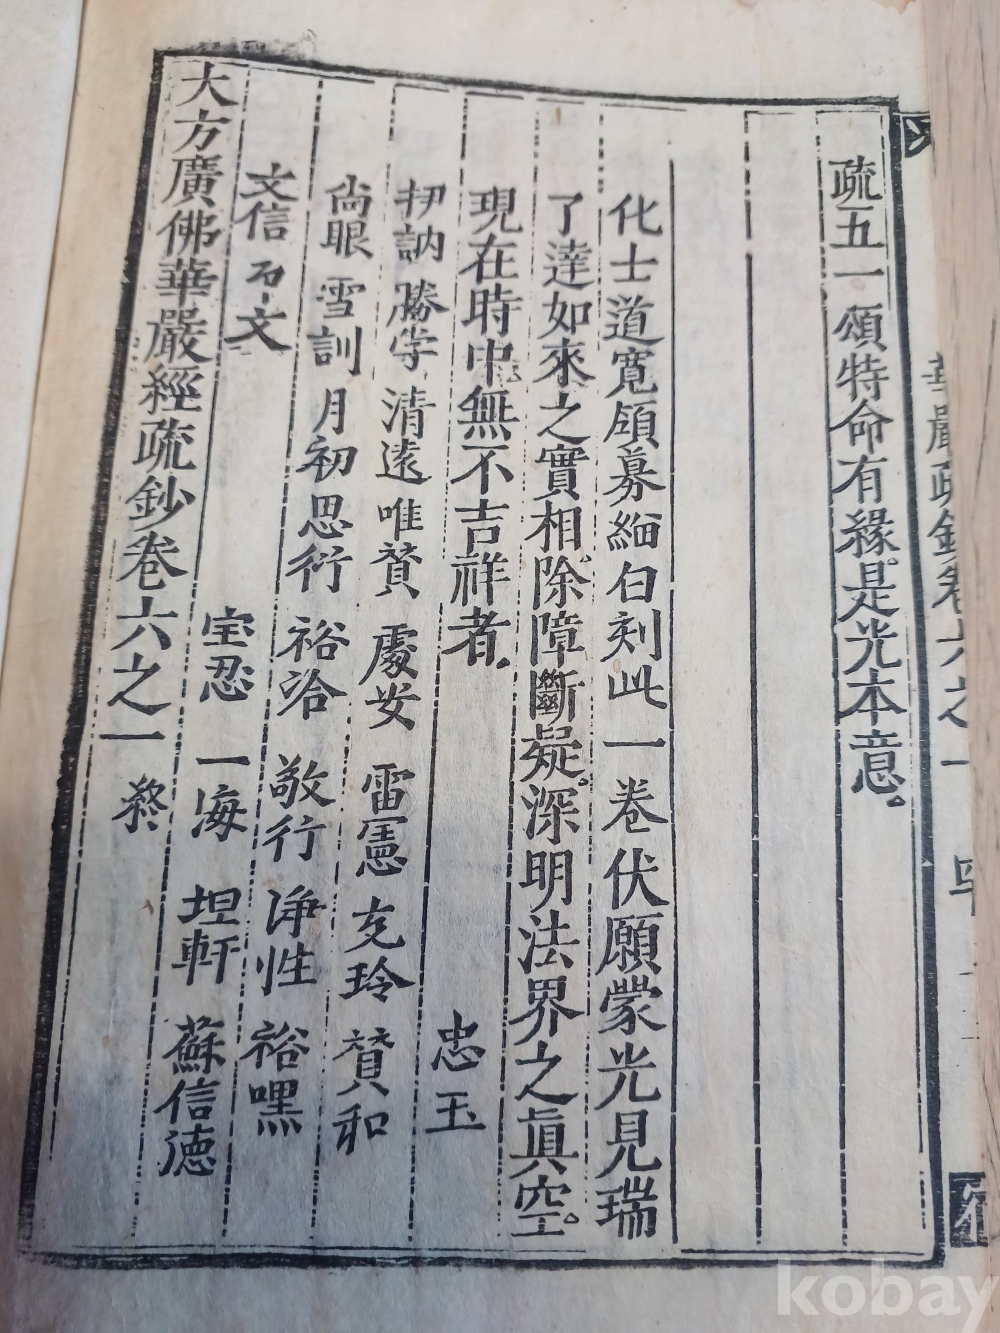 疏五一頌特命有緣是光本意
化士道寬領募緇白刻此一卷伏願蒙光見瑞
了達如來之實相除障斷疑深明法界之眞空
現在時中無不吉祥者 忠玉
勝学 清遠 唯贊 處安 雷憲 玄玲 贊和
尙眼 雪訓 月初 思衍 裕洽 敬行 淨性 裕嘿
文信 石文 宝忍 一海 坦軒 蘇信德
大方廣佛華嚴經疏鈔卷六之一 終
華嚴疏鈔卷六之一
kobay